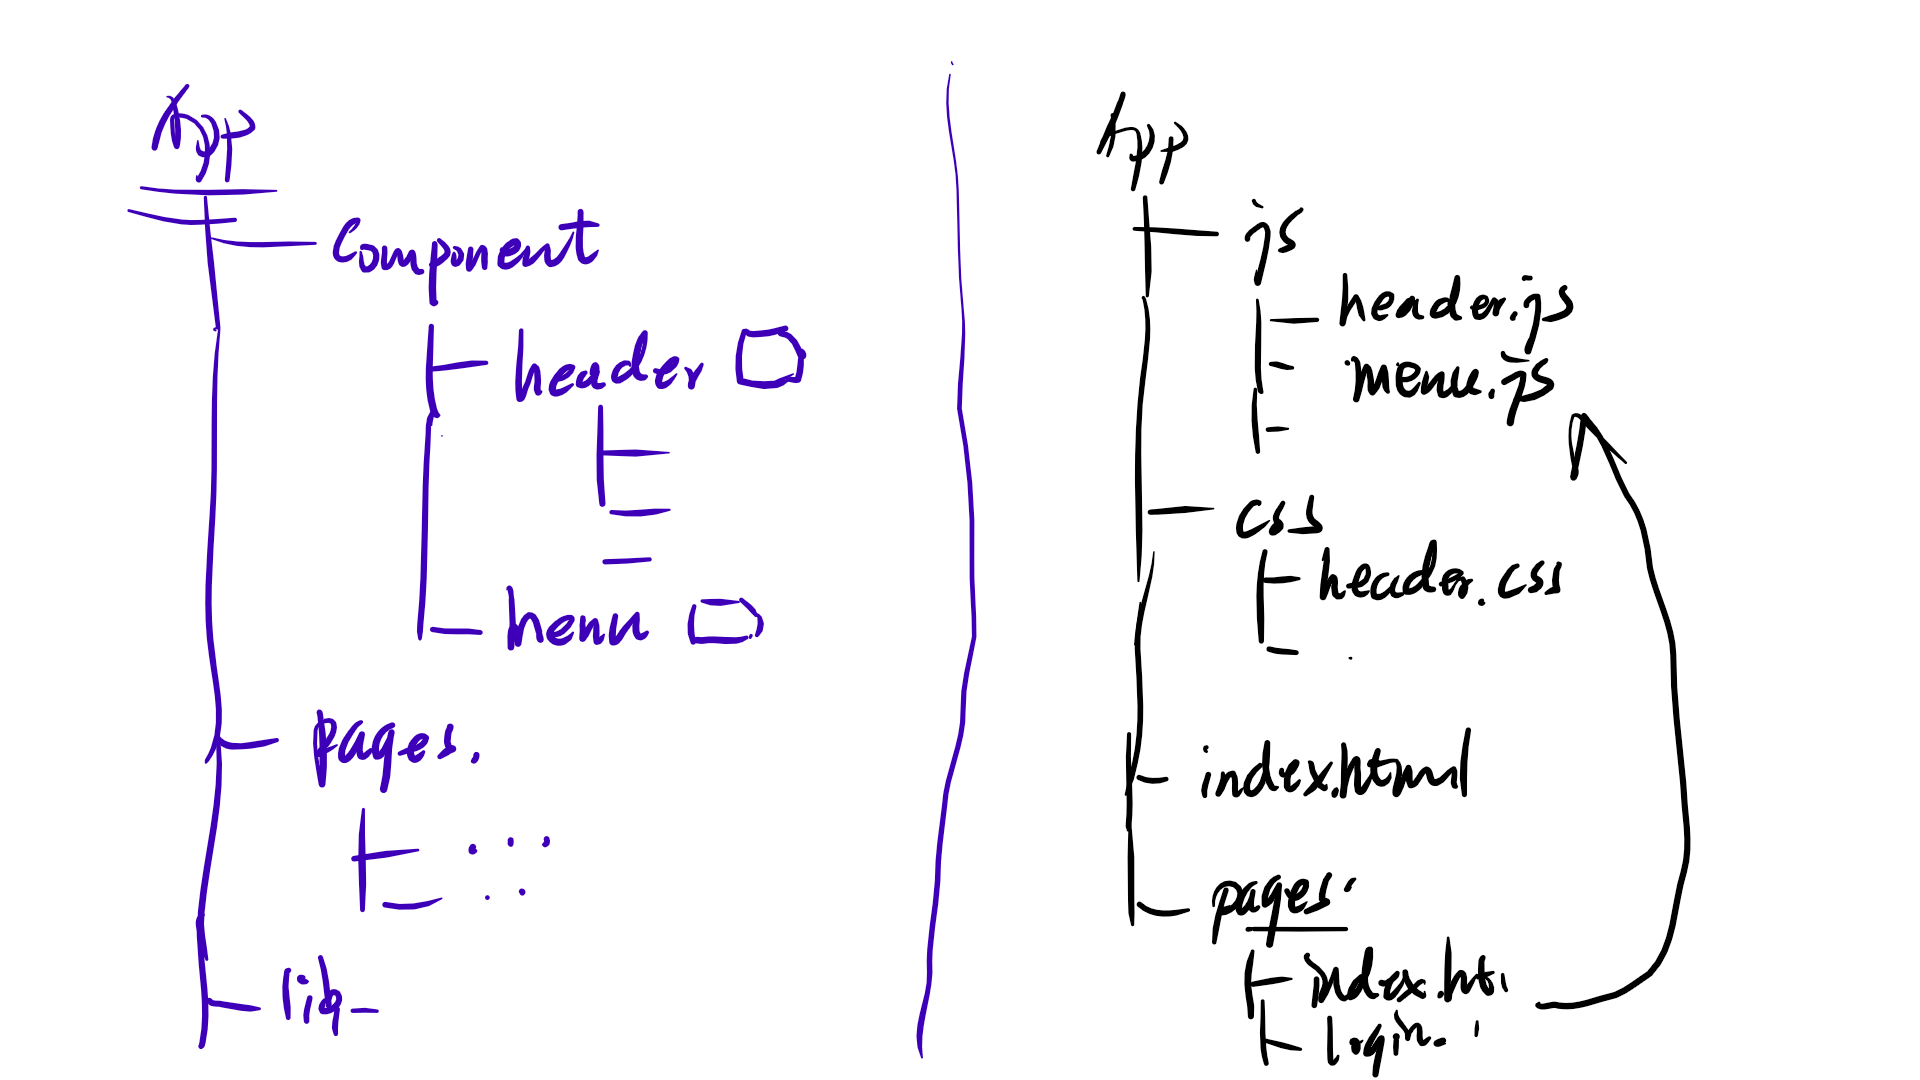 App
Component
header
henu
pages.
lib
App
js
header.js
menu.js
css
header.css
index.html
pages
index.ht
login.